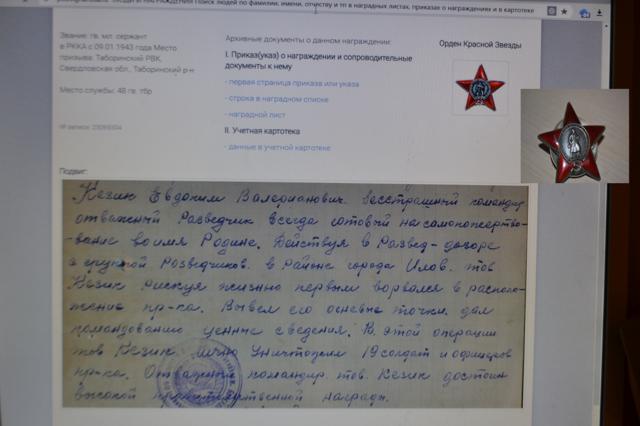 НАГРАЖДЕНИЯ Поиск людей по фамилии, имени, отчеству и тп в наградных листах, приказах о награждениях и в картотеке
Звание: гв. мл. сержант
в РККА с 09.01.1943 года Место
призыва: Таборинский РВК,
Свердловская обл., Таборинский р-н
Место службы: 48 гв. тбр
№ записи:
Архивные документы о данном награждении:
I. Приказ(указ) о награждении и сопроводительные
документы к нему
- первая страница приказа или указа
- строка в наградном списке
- наградной лист
II. Учетная картотека
- данные в учетной картотеке
Орден Красной Звезды
Подвиг:
Кезик Евдоким Валерианович. Бесстрашный командир
отважный разведчик всегда готовый на самопожертво-
-вание во имя Родине. Действуя в развед-дозоре
с группой розведчиков. в районе города Илов. тов
Кезик рискуя жизнью первым ворвался в располо-
жение пр-ка. Вывел его огневые точки. дал
командованию ценные сведения. В этой операции
тов Кезик лично уничтожил 19 солдат и офицеров
пр-ка. Отважный командир тов. Кезик достоин
высокой правительственной награды.